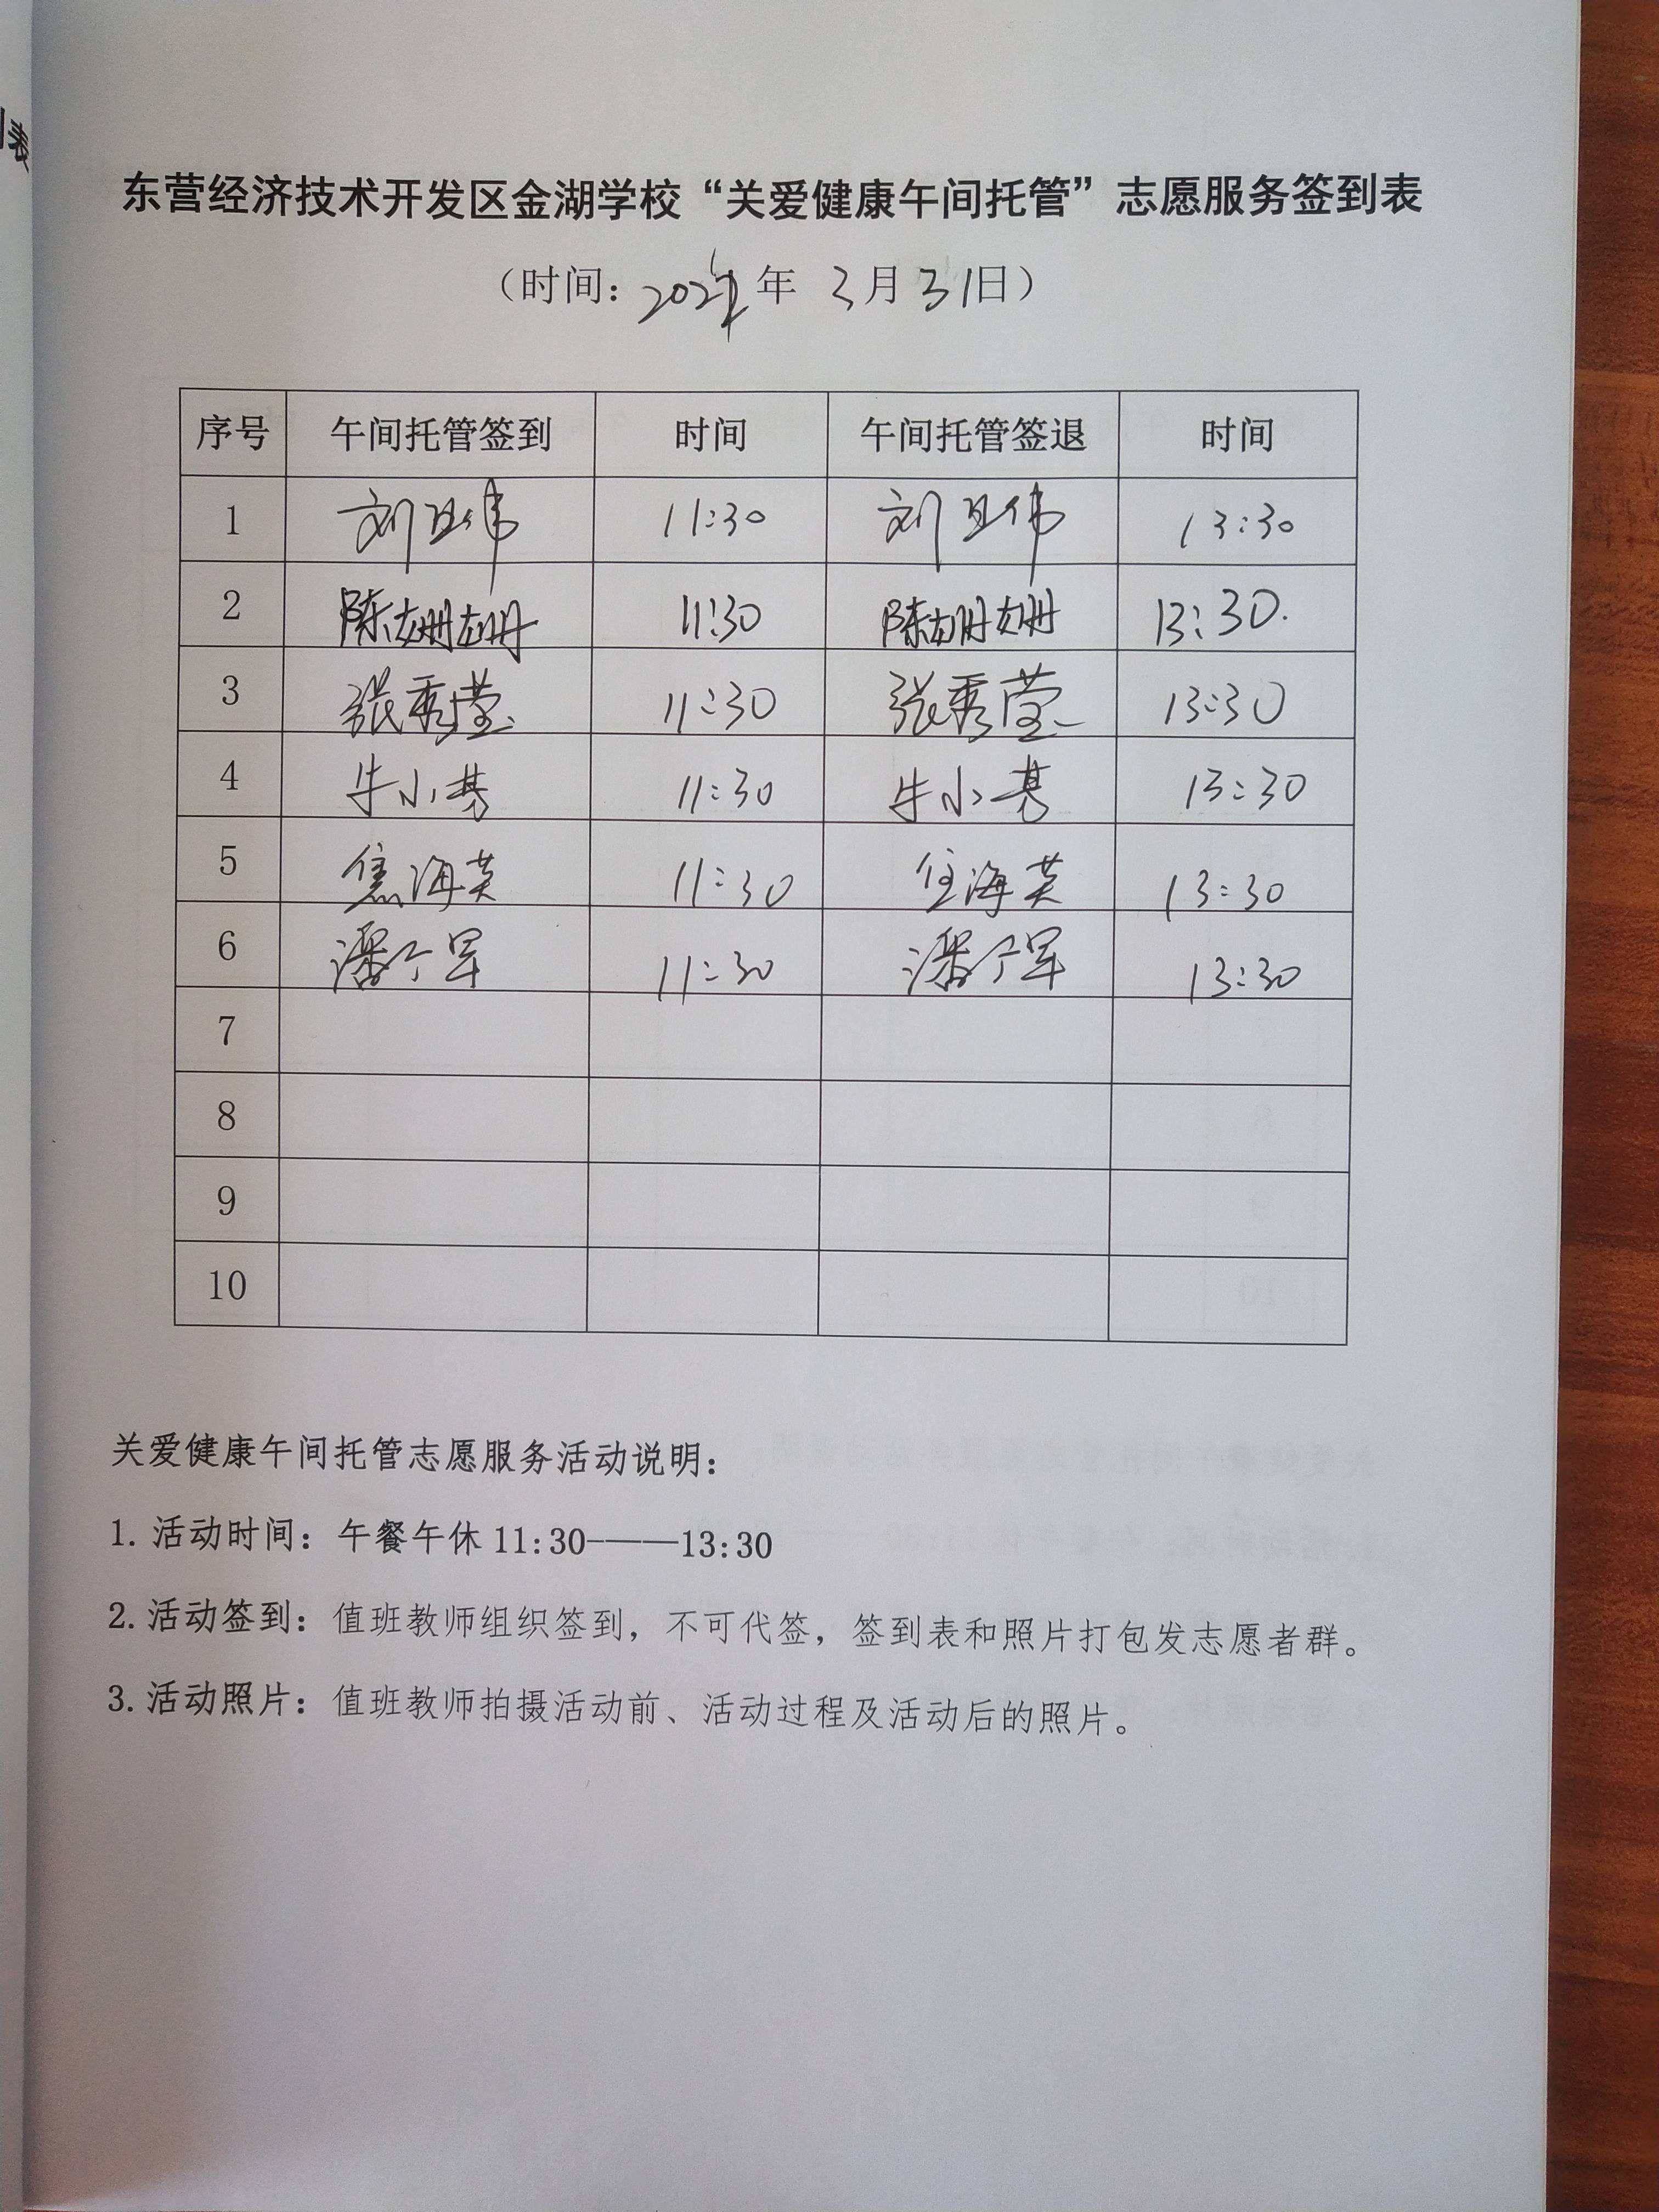 东营经济技术开发区金湖学校“关爱健康午间托管”志愿服务签到表
（时间: 年 3月31日）
序号 午间托管签到 时间 午间托管签退 时间
1 刘卫伟 11:30 刘卫伟 13:30
2 陈姗姗 11:30 陈姗姗 13:30.
3 张秀莹 11:30 张秀莹 13:30
4 牛小 11:30 牛小 13:30
5 焦海英 11:30 焦海英 13:30
6 潘军 11:30 潘军 13:30
7
8
9
10
关爱健康午间托管志愿服务活动说明:
1. 活动时间: 午餐午休 11:30-——13:30
2. 活动签到: 值班教师组织签到，不可代签，签到表和照片打包发志愿者群。
3. 活动照片: 值班教师拍摄活动前、活动过程及活动后的照片。